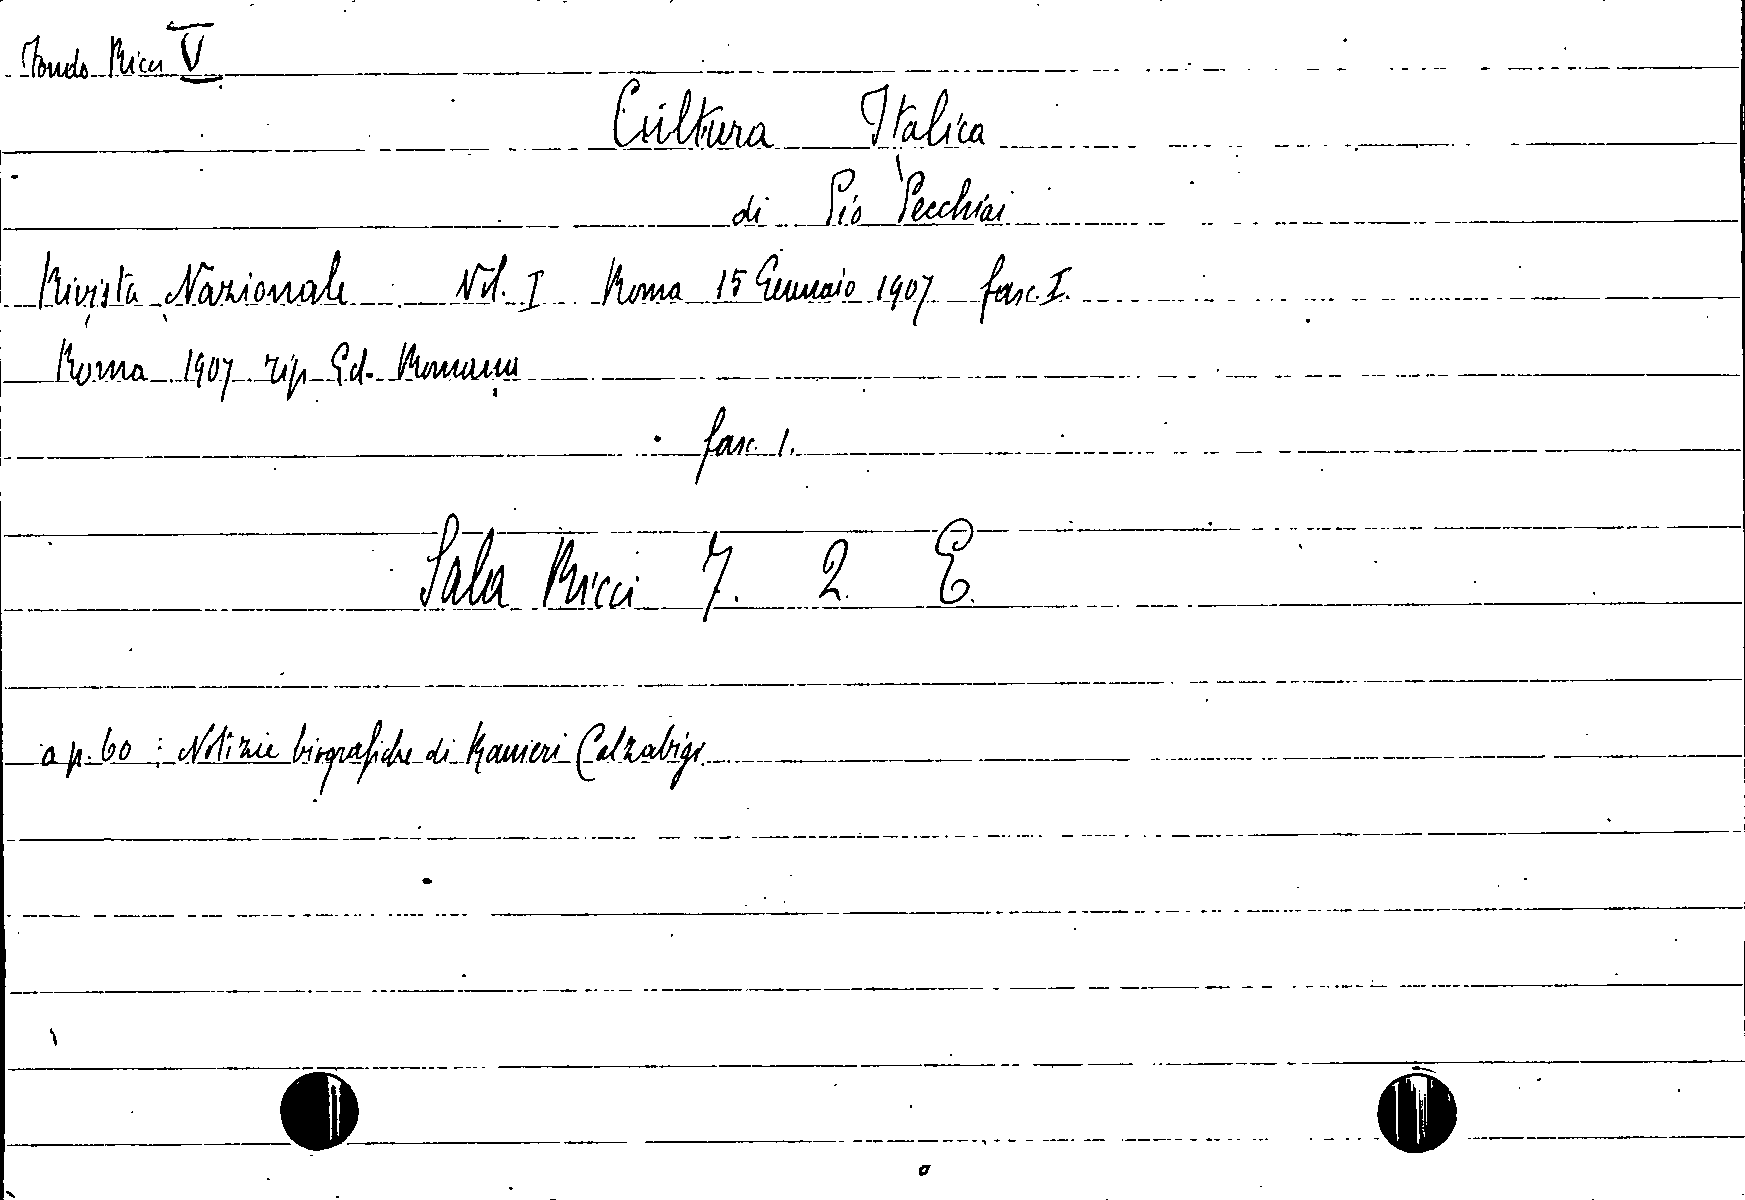 Fondo Ricci V
Cultura Italica
di Pio Pecchiai
Rivista Nazionale Vol. I Roma 15 Gennaio 1907 fasc. I.
Roma 1907 tip. Ed. Romana
fasc. 1.
Sala Ricci 7. 2. E.
a p. 60 : Notizie biografiche di Ranieri Calzabigi